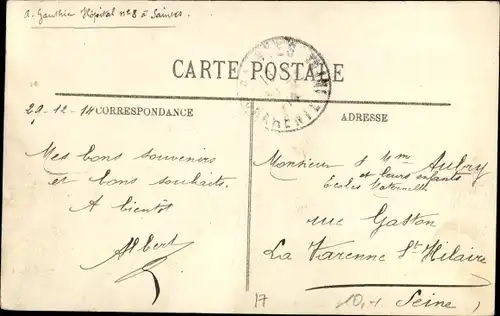 A. Gauthier Hôpital n° 8 à Saintes.
CARTE POSTALE
29-12-14 CORRESPONDANCE
ADRESSE
Mes bons souvenirs
et bons souhaits.
A bientôt
Albert
Monsieur & Mme Aubry
et leurs enfants
Ecoles Maternelle
rue Gaston
La Varenne St Hilaire
Seine
17
10.-